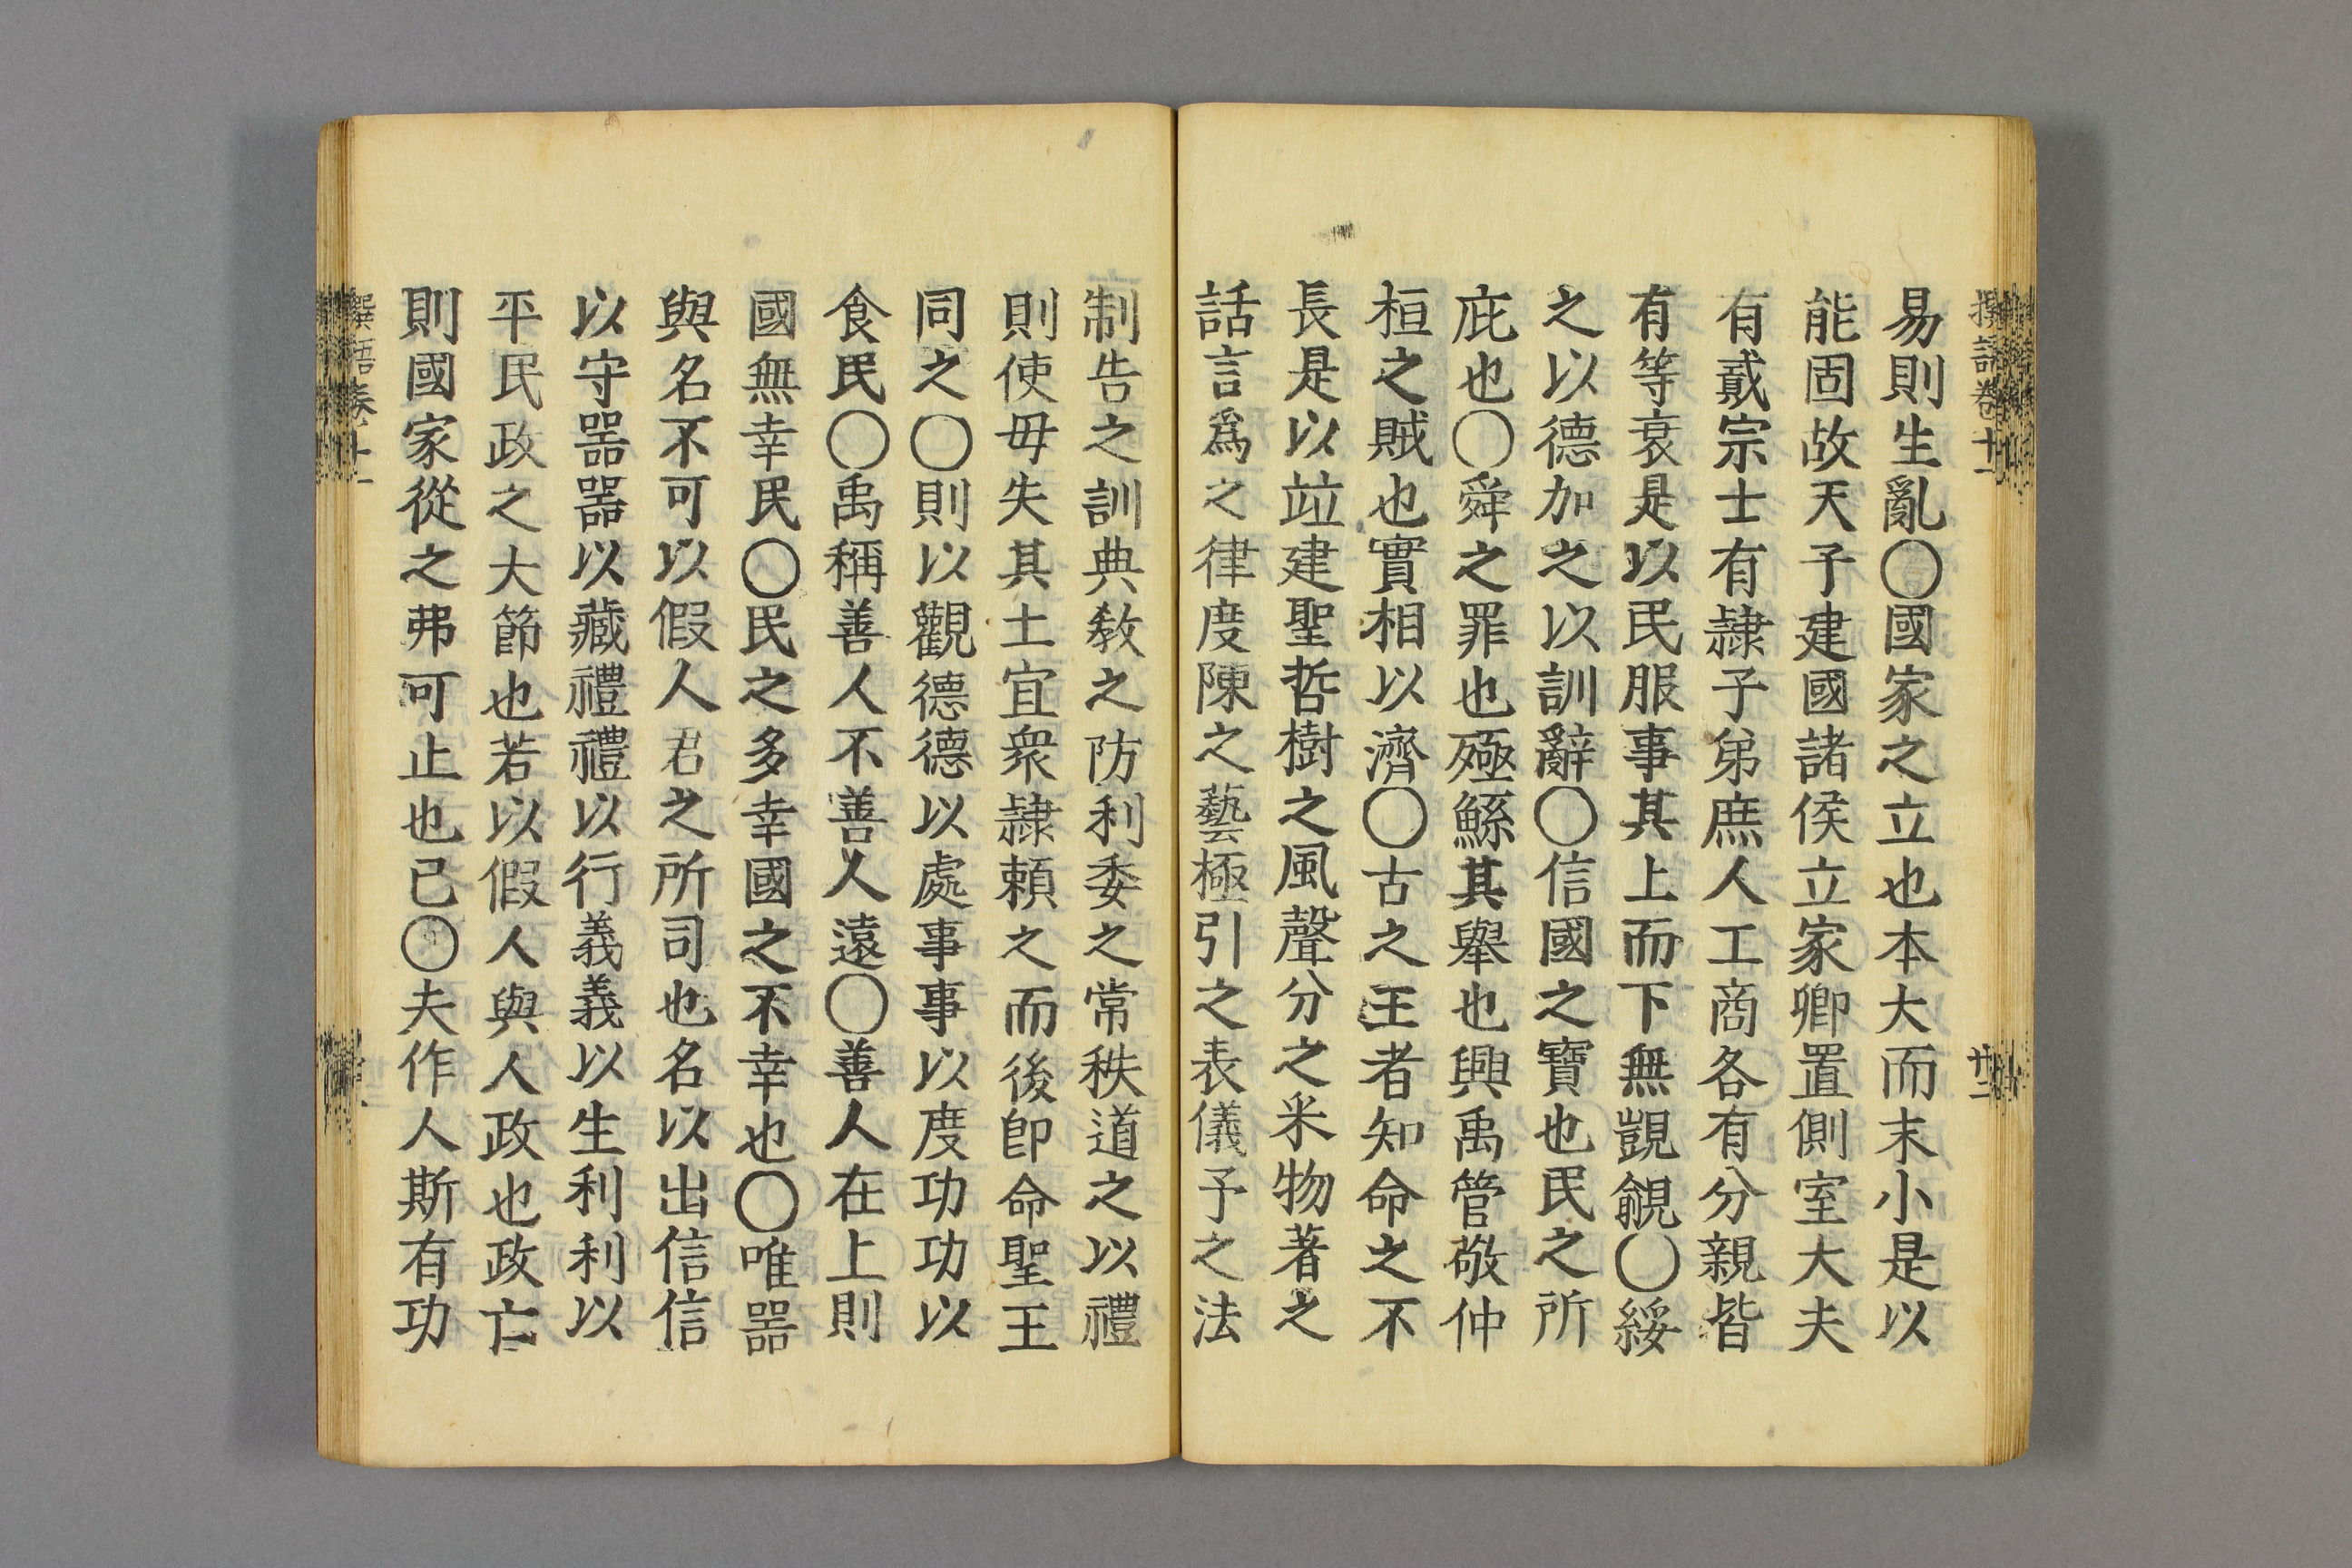 撰語卷十一
廿二
易則生亂〇國家之立也本大而末小是以
能固故天子建國諸侯立家卿置側室大夫
有貳宗士有隷子弟庶人工商各有分親皆
有等衰是以民服事其上而下無覬覦〇綏
之以德加之以訓辭〇信國之寶也民之所
庇也〇舜之罪也殛鯀其舉也興禹管敬仲
桓之賊也實相以濟〇古之王者知命之不
長是以竝建聖哲樹之風聲分之采物著之
話言爲之律度陳之藝極引之表儀予之法
制告之訓典敎之防利委之常秩道之以禮
則使毋失其土宜衆隷頼之而後卽命聖王
同之〇則以觀德德以處事事以度功功以
食民〇禹稱善人不善人遠〇善人在上則
國無幸民〇民之多幸國之不幸也〇唯器
與名不可以假人君之所司也名以出信信
以守器器以藏禮禮以行義義以生利利以
平民政之大節也若以假人與人政也政亡
則國家從之弗可止也已〇夫作人斯有功
撰語卷十一